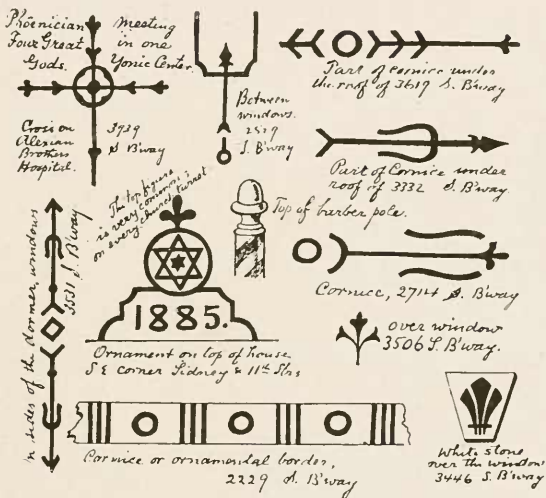 Phoenician
Four Great
Gods.
Meeting
in one
Yonic Center.
Cross on
Alexian
Brothers
Hospital.
3939
S B'way
Between
windows.
2529
S. B'way
Part of cornice under
the roof of 3619 S. B'way
Part of Cornice under
roof of 3332 S. B'way.
The top figure
is very common
on every church turret
Top of barber pole.
Cornice, 2714 S. B'way
1885.
Ornament on top of house
S E corner Sidney & 11th Sts
over window
3506 S. B'way.
sides of the dormer windows
3531 S B'way
Cornice or ornamental border,
2229 S. B'way
White stone
over the window
3446 S. B'way